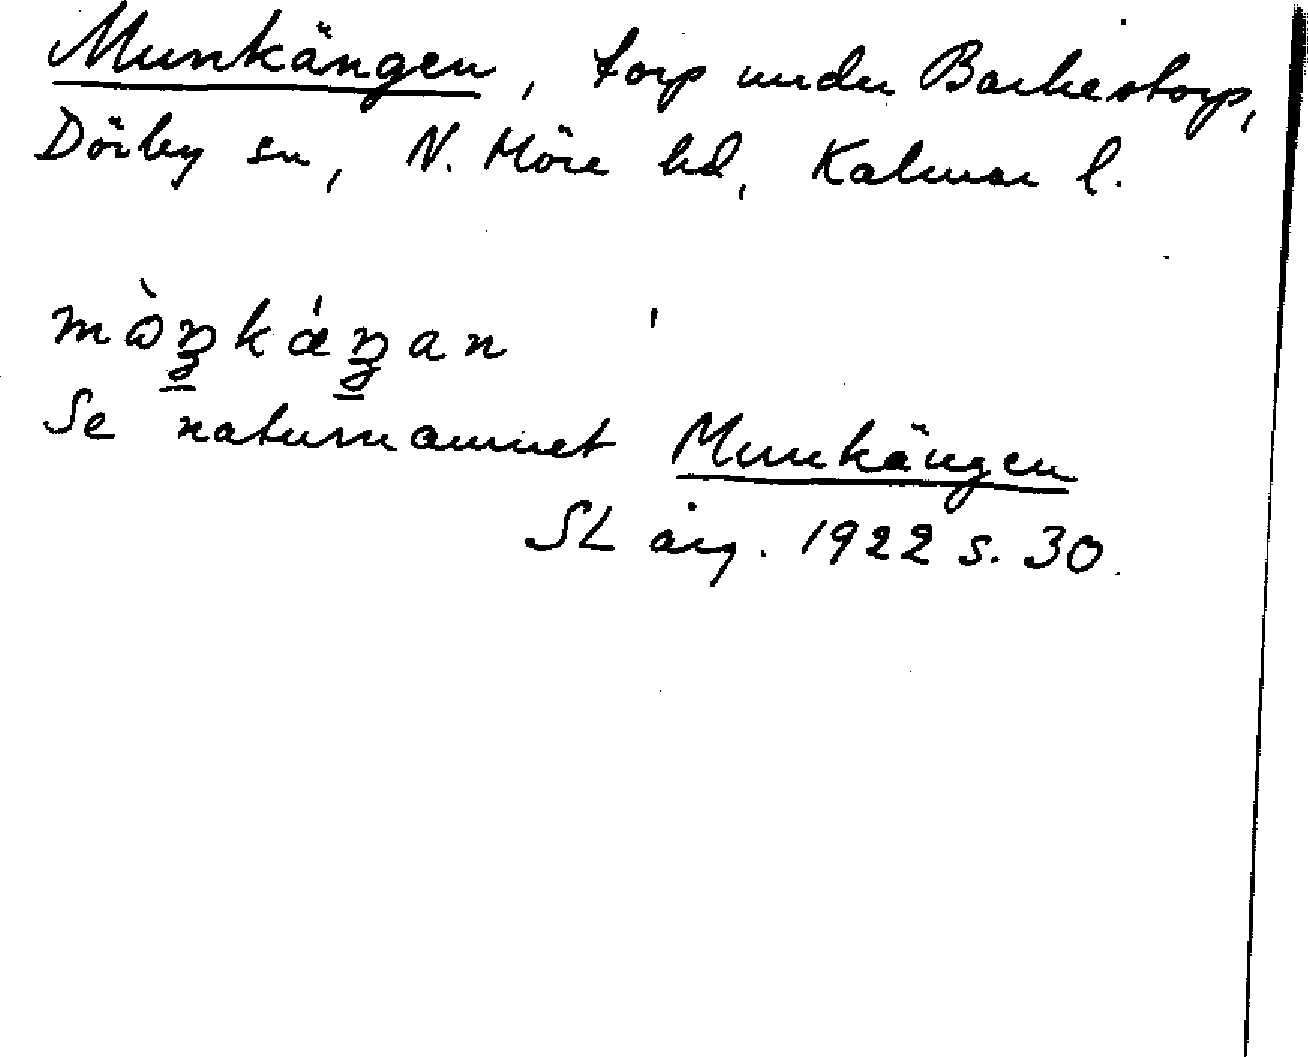 Munkängen, torp under Barkestorp,
Dörby sn, N. Möre hd, Kalmar l.
mὼŋkǽŋan
Se naturnamnet Munkängen
SL årg. 1922 s. 30